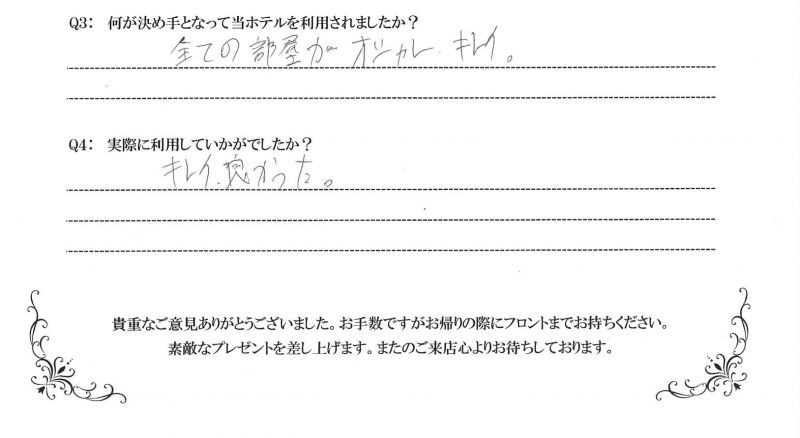 Q3： 何が決め手となって当ホテルを利用されましたか？
全ての部屋がオシャレ、キレイ。
Q4： 実際に利用していかがでしたか？
キレイ、良かった。
貴重なご意見ありがとうございました。お手数ですがお帰りの際にフロントまでお持ちください。
素敵なプレゼントを差し上げます。またのご来店心よりお待ちしております。